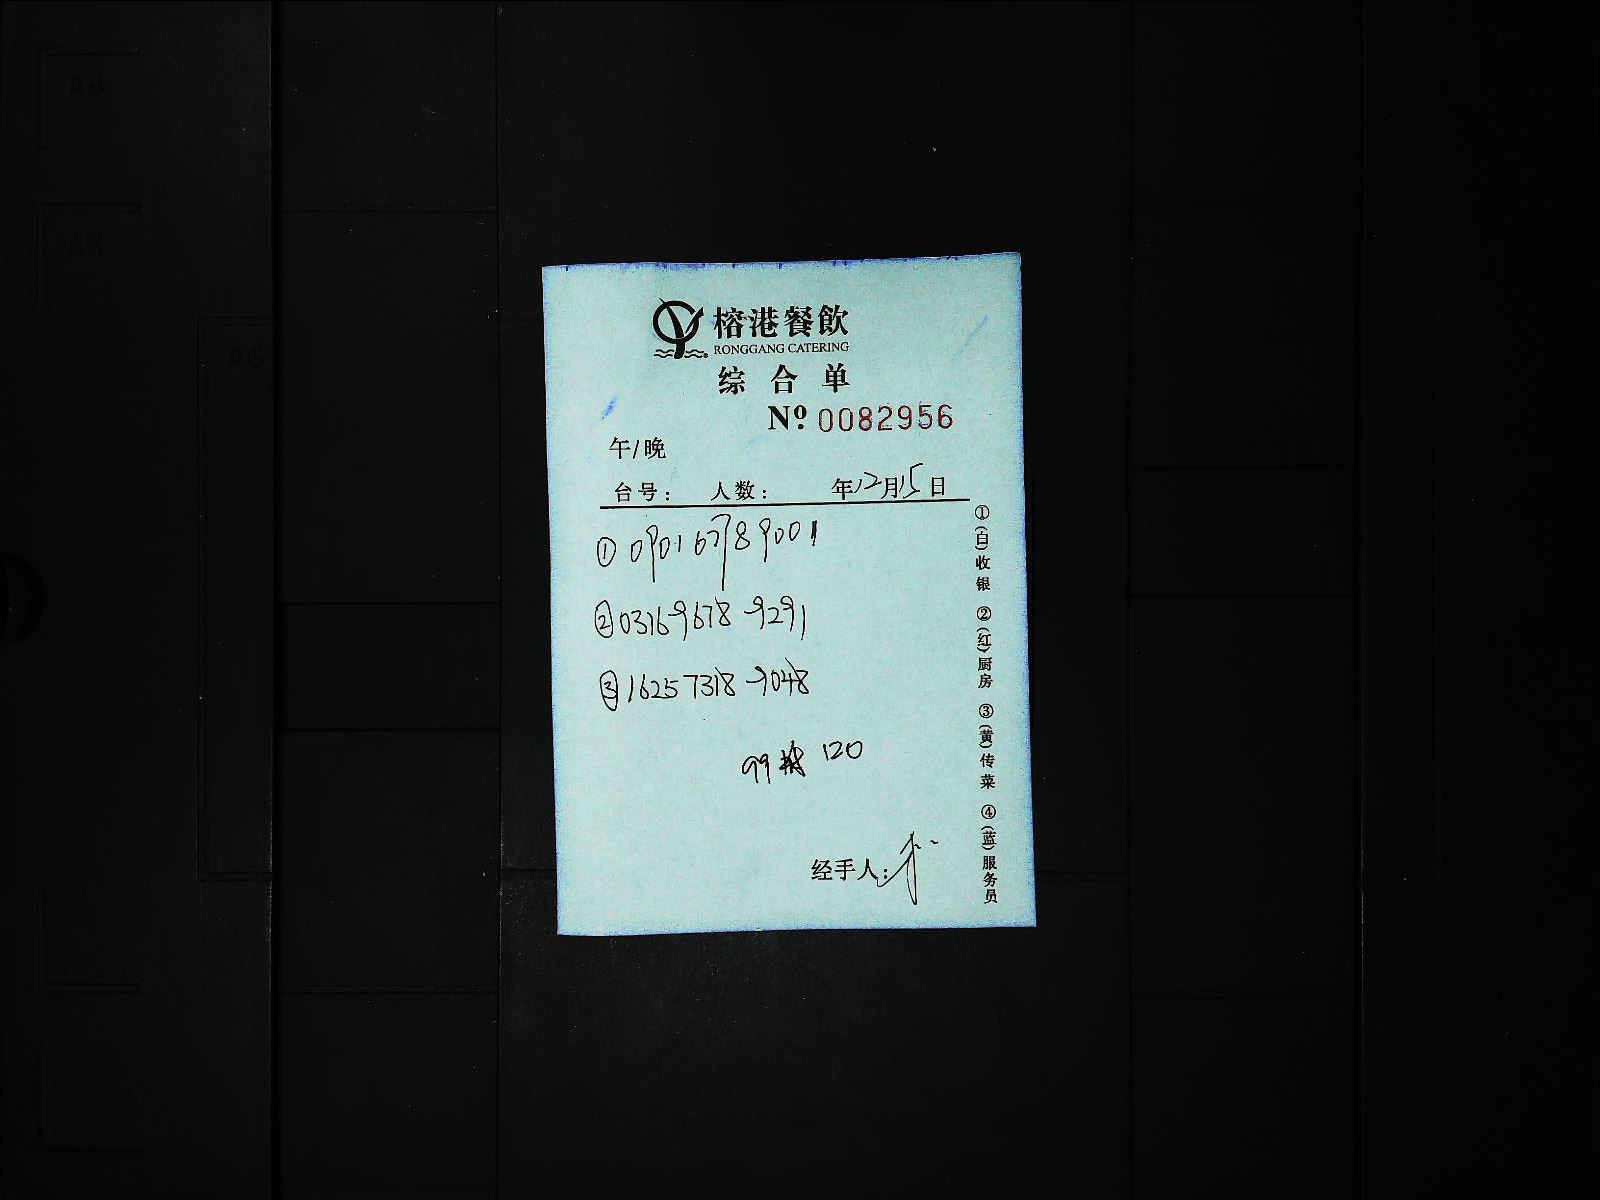 A4
A5
A6
榕港餐飲
RONGGANG CATERING
综合单
Nº 0082956
午/晚
台号： 人数： 年12月15日
① 090167789001
② 03169678 9291
③ 16257318 9048
99 120
经手人：
①(白)收银 ②(红)厨房 ③(黄)传菜 ④(蓝)服务员